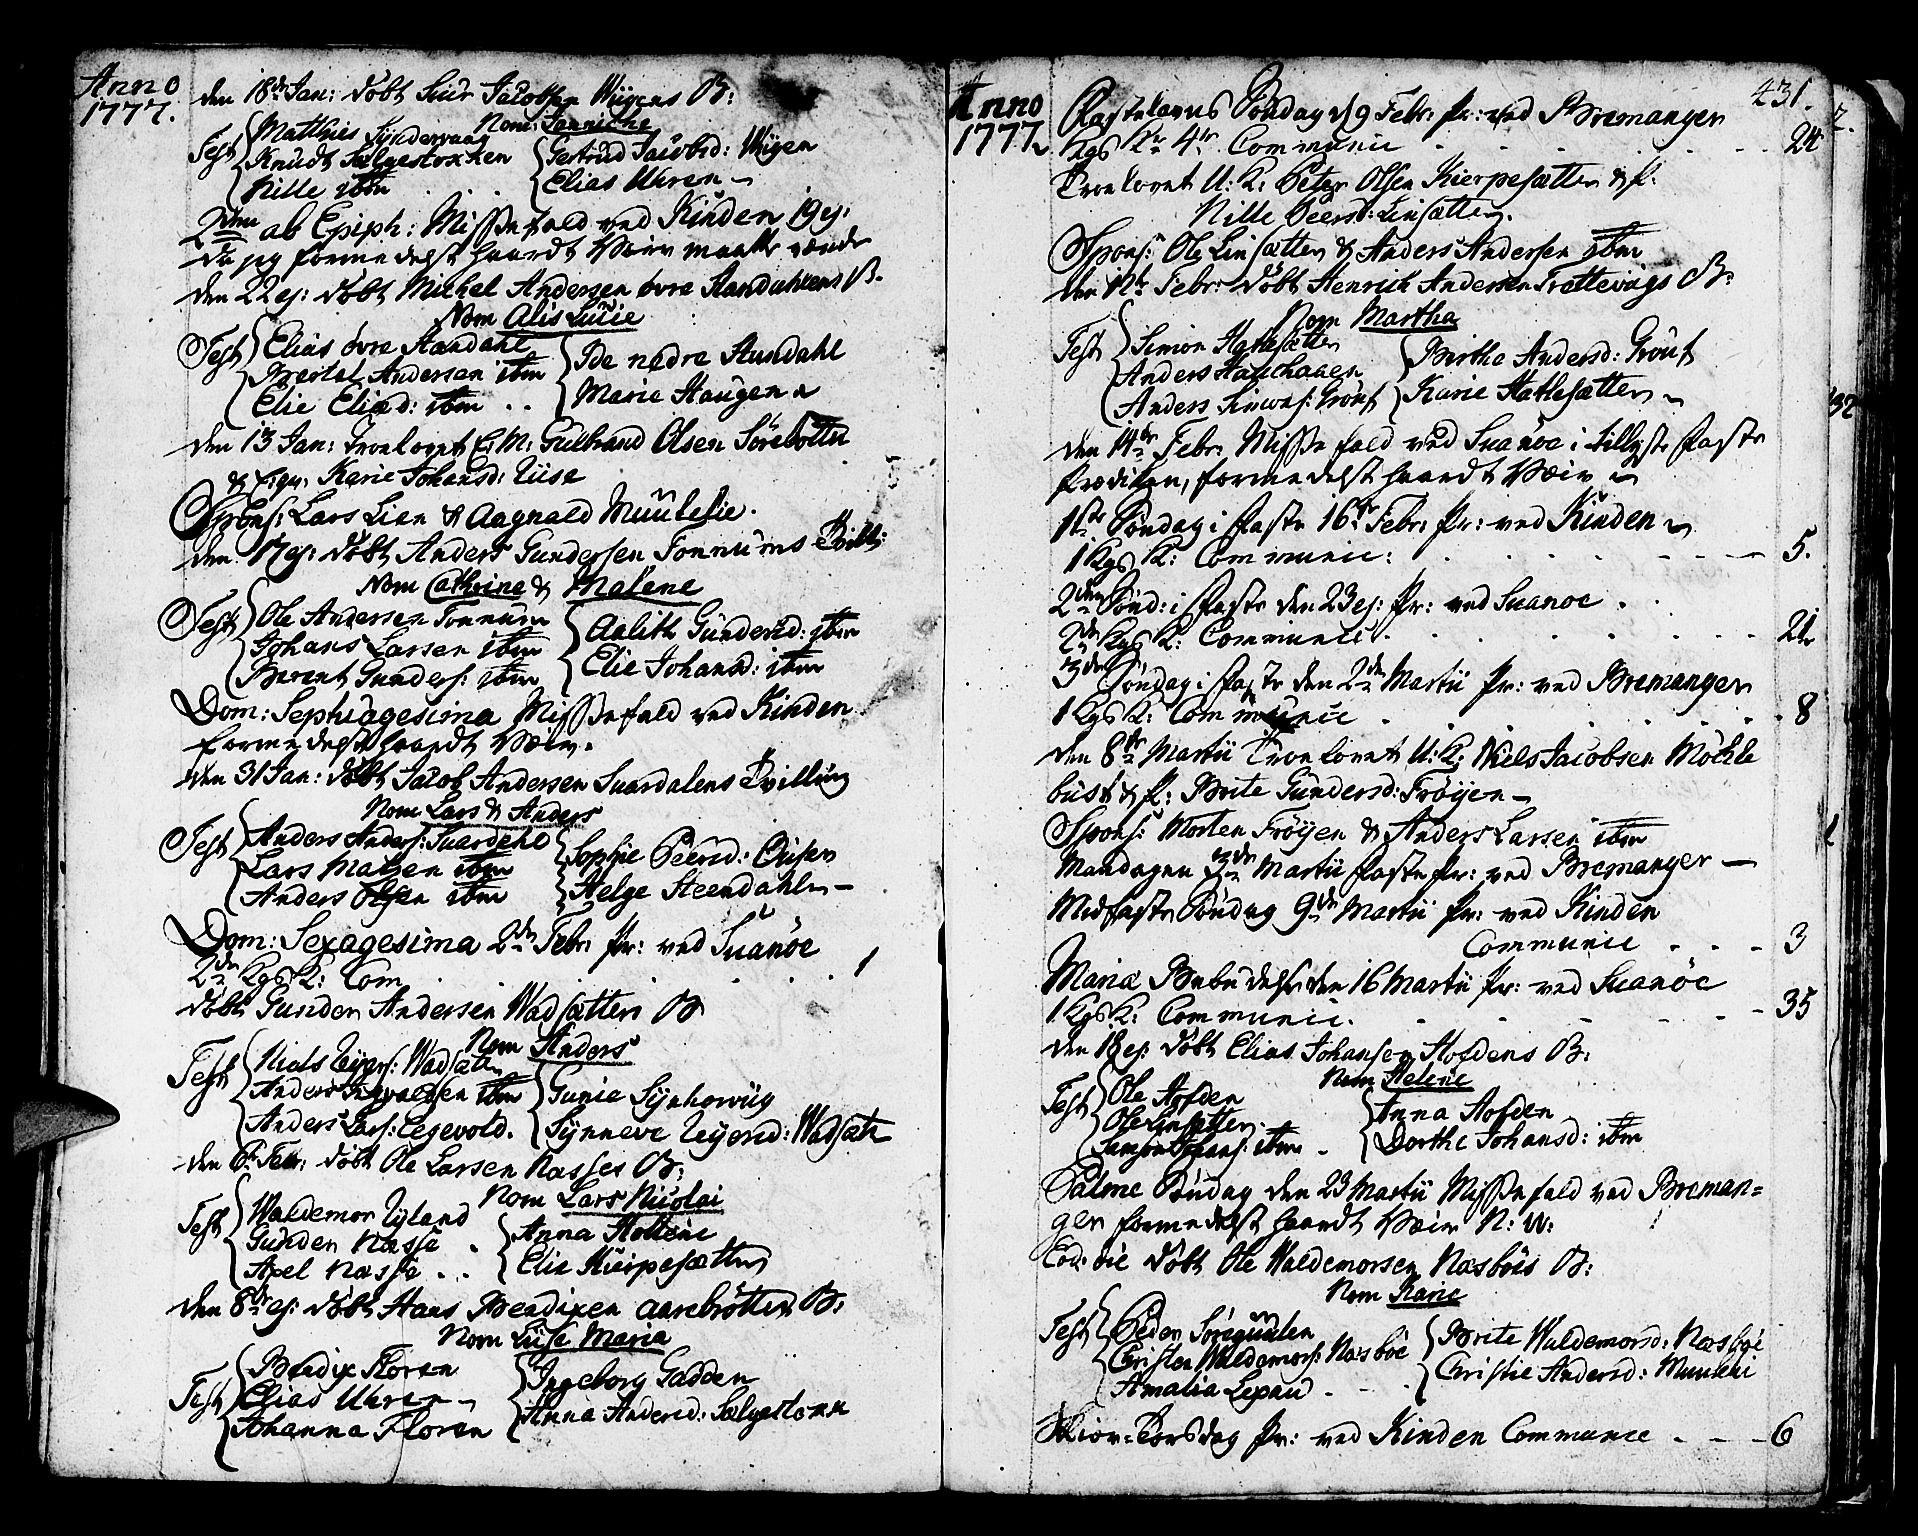 Anno 1777.
den 18de Jan: döbt Siur Jacobsen Wügens B:
Nom: Jannicke
Test Matthies Sÿndervaag
Knudt Sælgestokken
Nille ibm
Gertrud Jacobsd: Wügen
Elias Uhren
2den ab Epiph: Missefald ved Kinden 19 ej:
da jeg formedelst haardt Væir maatte vende
den 22 ej: döbt Michel Andersen övre Aandahlens B.
Nom Alis Lucie
Test Elias övre Aandahl
Bertel Andersen ibm
Elie Eliæd: ibm
Ide nedre Aundahl
Marie Haugen
den 13 Jan: Trolovet E: M: Gulbrand Olsen Sörebotten
& Karie Johansd: Liise
Spons: Lars Lien & Aagnald Muulelie.
den 17 ej: döbt Anders Gundersen Tonnums Tvill:
Nom Cathrine & Malene
Test Ole Andersen Tonnum
Johans Larsen ibm
Berent Gunders: ibm
Aalith Gundersd: ibm
Elie Johansd: ibm
Dom: Sephuagesima Missefald ved Kinden
formedelst haardt Væir.
den 31 Jan: döbt Jacob Andersen Suardalens Tvilling
Nom Lars & Anders
Test Anders Anders: Suardahl
Lars Matsen ibm
Anders Olsen ibm
Sophie Peersd:
Helge Steendahl
Dom: Sexagesima 2den Febr: Pr: ved Suanöe
2den Kgs K: Com . . . 1
döbt Gunder Andersen Wadsætters B
Nom Anders
Test Niels Wadsætt
Anders Ingvaldsen ibm
Anders Lars: Legevold.
Gunie Sÿnhovüg
Sÿnneve Wadsæt
den 6te Febr: döbt Ole Larsen Nasses B:
Nom Lars Nicolai
Test Waldemor Nÿland
Gunder Nasse
Axel Nasse
Anna Holtene
Elie Kierpesætter
den 8de ej: döbt Hans Bendixen Aarebrötten B:
Nom Liise Maria
Test Bendix Floren
Elias Uhren
Johanna Floren
Ingeborg Gadden
Anna Andersd: Sælgestokk
Anno 1777
431.
Fastelavns Söndag d 9 Febr: Pr: ved Bremanger
Kgs K: 4de Communic . . . 24
Trolovet U: K: Peter Olsen Kierpesætter & P:
Nille Peersd: Linsætter.
Spons: Ole Linsætter & Anders Andersen ibm
den 12te Febr: döbt Henrich Andersen Trettevigs B:
Nom Martha
Test Simon Hatlesætter
Anders
Anders Simons: Grouf
Birthe Andersd: Grouf
Karie Hatlesætter
den 14de Febr: Missefald ved Suanöe i tillyste Faste
Prædiken, formedelst haardt Væir
1ste Söndag i Faste 16de Febr: Pr: ved Kinden
1 Kgs K: Communic: . . . 5.
2den Sönd: i Faste den 23 ej: Pr: ved Suanoe
2den Kgs K: Communic . . . 21
3de Söndag i Faste den 2den Martii Pr: ved Bremanger
1 Kgs K: Communic . . . 8
den 8de Martii Trolovet U: K: Niels Jacobsen Möckle
bust & P: Brite Gundersd: Fröÿen
Spons: Morten Fröÿen & Anders Larsen ibm
Mandagen 3de Martii Faste Pr: ved Bremanger
Midfaste Söndag 9de Martii Pr: ved Kinden
Communic . . . 3
Mariæ Bebudelse den 16 Martii Pr: ved Suanöe
1 Kgs K: Communic. . . . 35
den 18 ej: döbt Elias Johansen Hofdens B:
Nom Helene
Test Ole Hofden
Ole Linsætter
Samson Johans: ibm
Anna Hofden
Dorthe Johansd: ibm
Palme Söndag den 23 Martii Missefald ved Breman=
ger formedelst haardt Væir N: W:
Eod: die döbt Ole Waldemorsen Næsböes B:
Nom Karie
Test Peder Söregulen
Christen Waldemors: Næsböe
Amalia Lexau
Brite Waldemorsd: Næsböe
Christie Andersd:
Skier-Torsdag Pr: ved Kinden Communic . . . 6